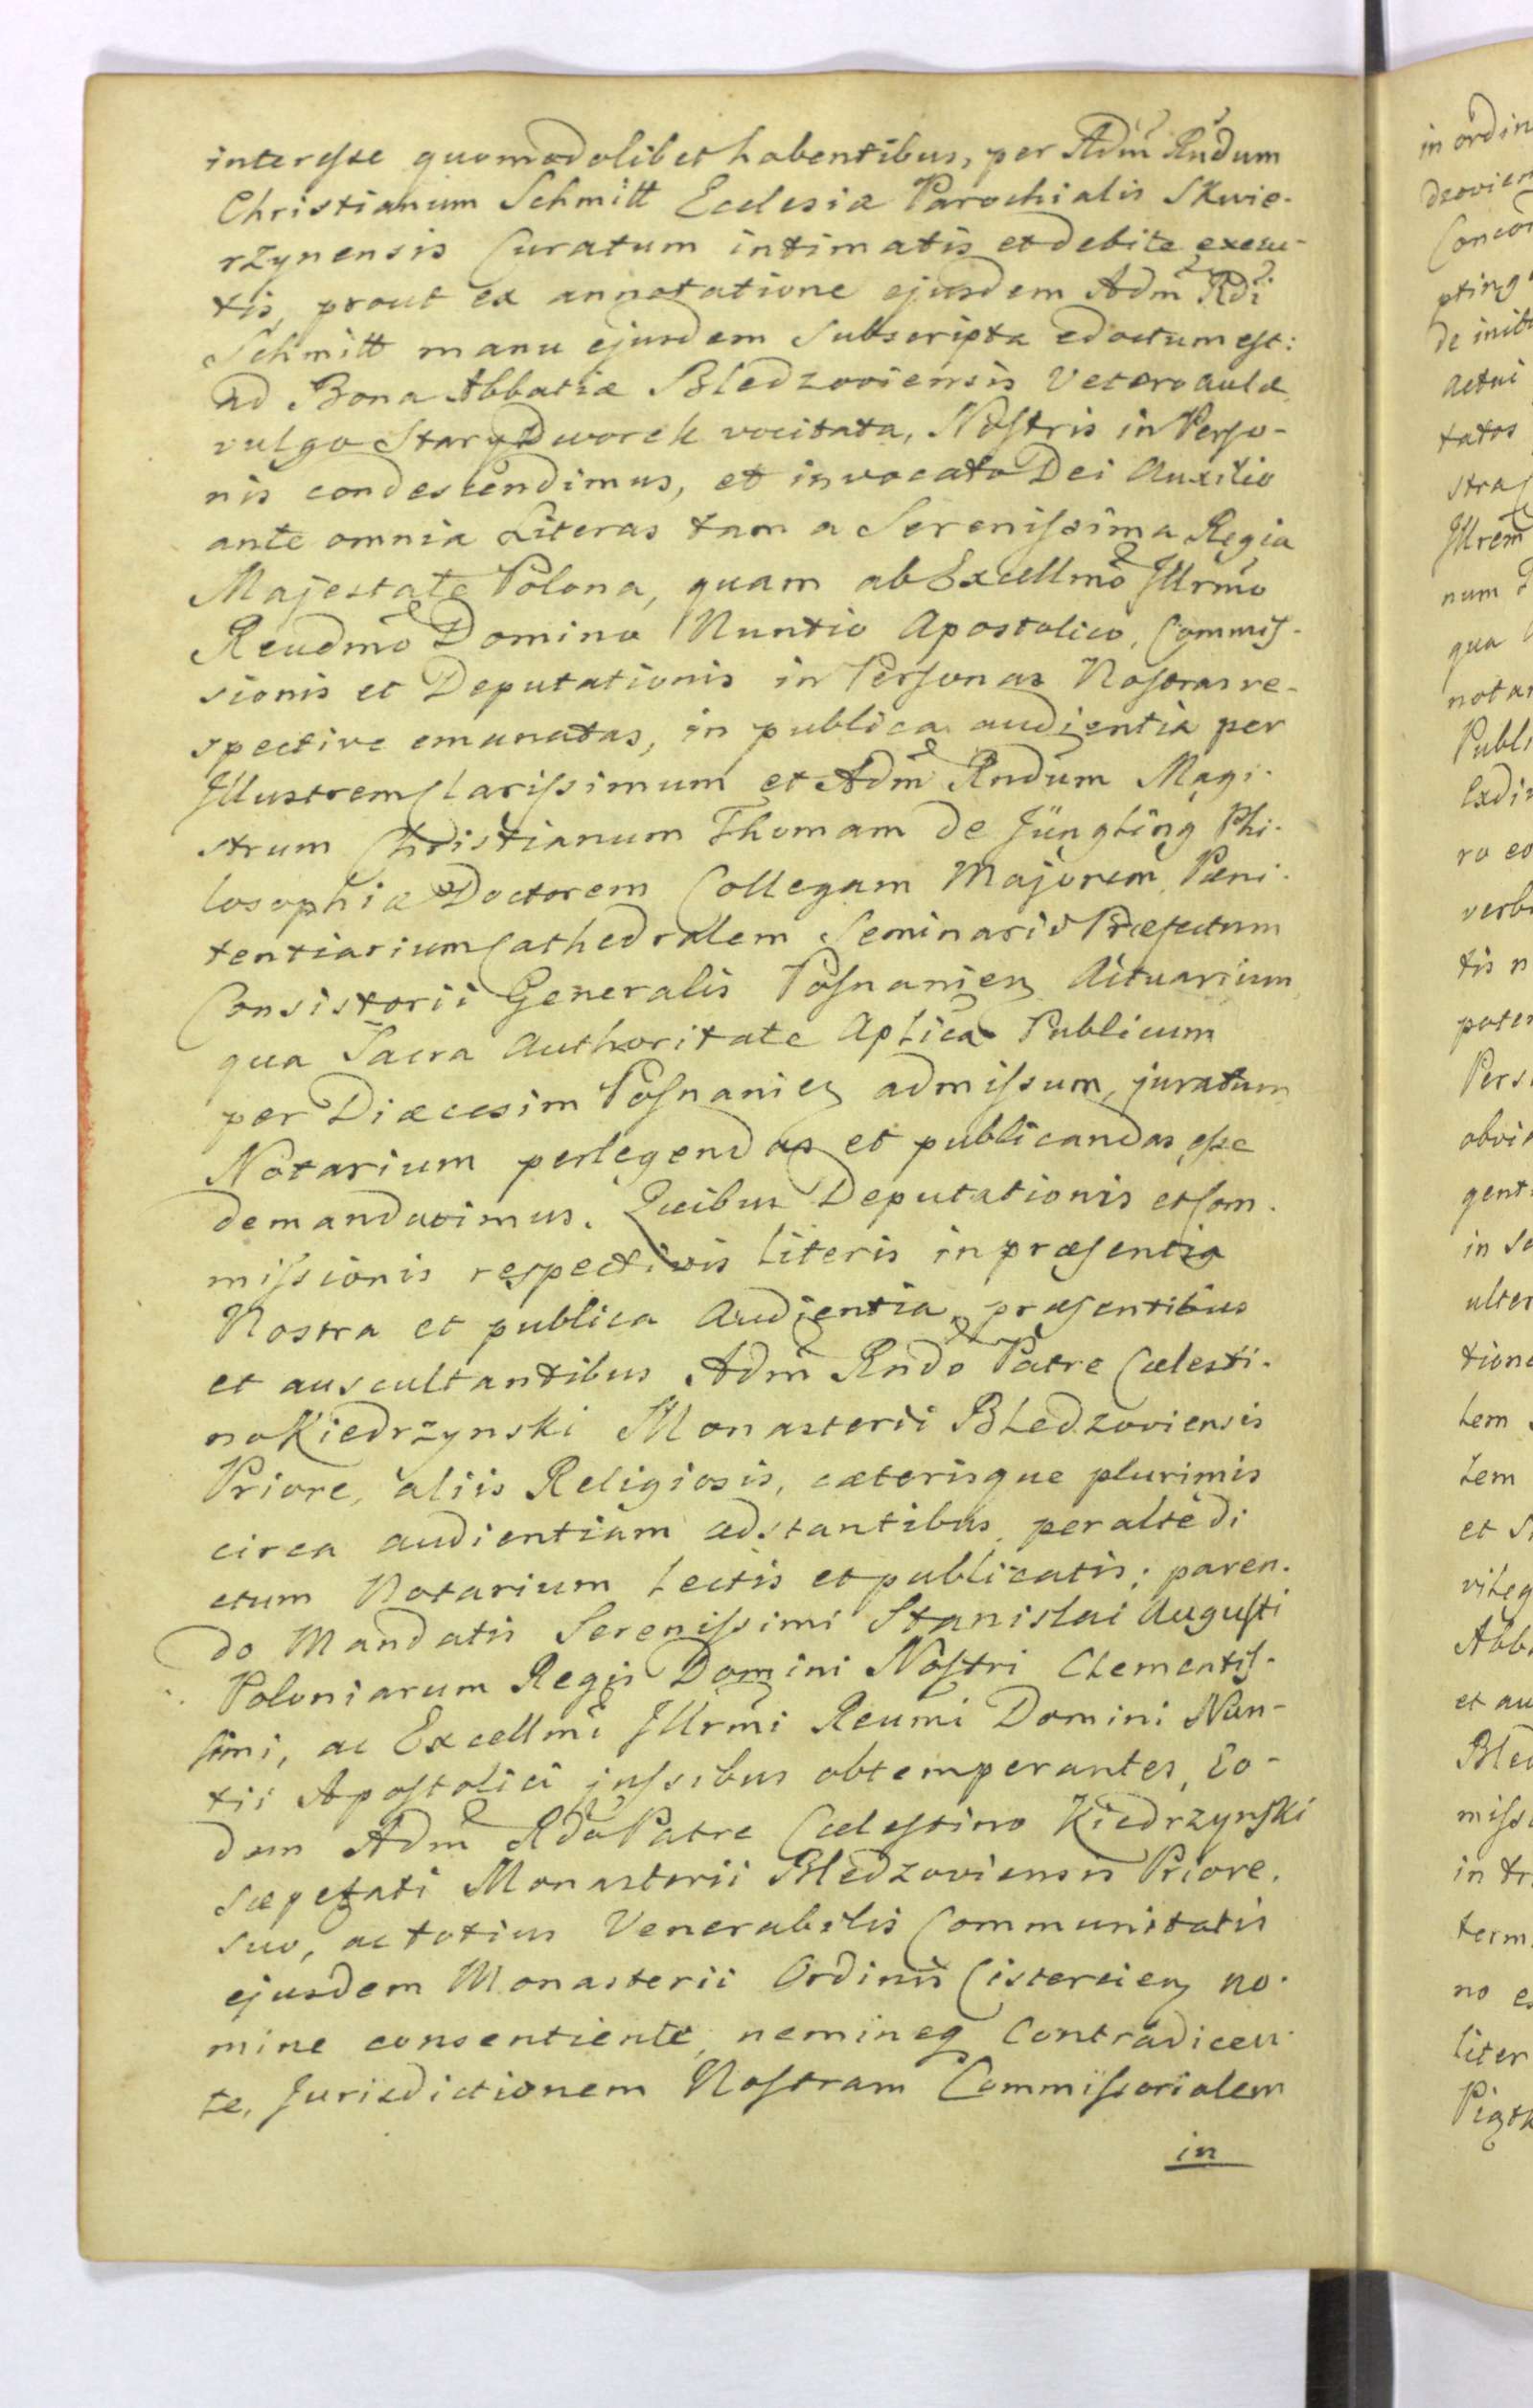 interesse quomodolibet habentibus, per Adm̃ Rndum
Christianum Schmitt Ecclesiæ Parochialis Skwie-
rzynensis Curatum intimatis et debite execu-
tis, prout ex annotatione ejusdem Adm̃ Rdi
Schmitt manu ejusdem subscripta edoctum est:
ad Bona Abbatiæ Bledzoviensis Veteroaulæ
vulgo Stary Dworek vocitata, Nostris in Perso-
nis condescendimus, et invocato Dei Auxilio
ante omnia Literas tam a Serenissima Regia
Majestate Polona, quam ab Excellmo Illrmo
Reudmo Domino Nuntio Apostolico, Commis-
sionis et Deputationis in Personas Nostras re-
spective emanatas, in publica audientia per
Illustrem Clarissimum et Adm̃ Rndum Magi-
strum Christianum Thomam de Jüngling Phi-
losophiæ Doctorem Collegam Majorem, Pæni-
tentiarium Cathedralem Seminarii Præfectum
Consistorii Generalis Posnanien Actuarium
qua Sacra Authoritate Aplica Publicum
per Diæcesim Posnanien admissum, juratum
Notarium perlegendas et publicandas esse
demandavimus. Quibus Deputationis et Com-
missionis respectivis Literis in præsentia
Nostra et publica Audientia, præsentibus
et auscultantibus Adm̃ Rndo Patre Cælesti-
no Kiedrzynski Monasterii Bledzoviensis
Priore, aliis Religiosis, cæterisque plurimis
circa audientiam adstantibus, per altè di
ctum Notarium Lectis et publicatis; paren-
do Mandatis Serenissimi Stanislai Augusti
Poloniarum Regis Domini Nostri Clementis-
simi, ac Excellmi Illrmi Reumi Domini Nun-
tii Apostolici jussibus obtemperantes, Eo-
dem Adm̃ Rdo Patre Cælestino Kiedrzynski
sæpefati Monasterii Bledzoviensis Priore,
suo, ac totius Venerabilis Communitatis
ejusdem Monasterii Ordinis Cistercien no-
mine consentiente, nemineq Contradicen-
te, Jurisdictionem Nostram Commissorialem
in
in ordin
dzovien
Concor
pting
de inib
actui
tatos
stra
Illrem
num
qua
notar
Publi
Exdi
ro eo
verb
tis n
poter
Pers
obvi
gent
in
ulter
tione
tem
tem
et
vileg
Abb
et au
Bled
miss
in tr
term
no
liter
Piątk